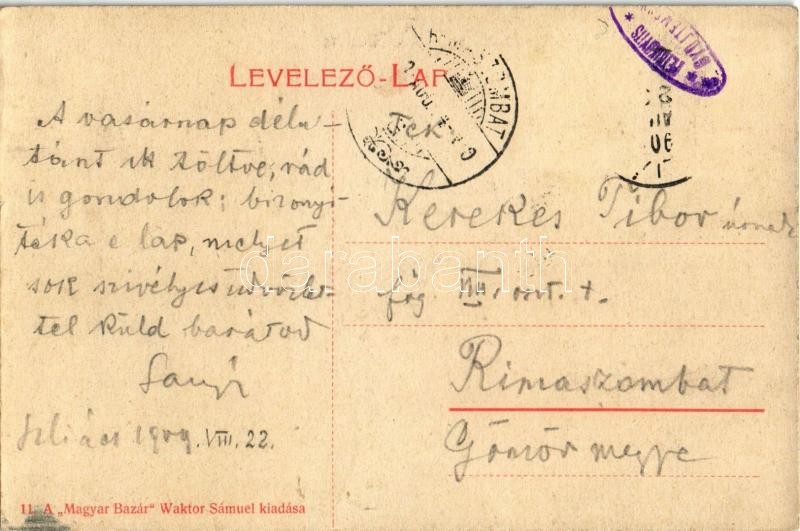 LEVELEZŐ-LAP
A vasárnap délu-
tánt itt töltve, rád
is gondolok; bizonyí-
téka e lap, melyet
sok szivélyes üdvözlet-
tel küld barátod
Sanyi
Szliács 1909. VIII. 22.
Tek.
Kerekes Tibor úrnak
fög. III. oszt. t.
Rimaszombat
Gömör megye
11. A „Magyar Bazár" Waktor Sámuel kiadása
darabanth